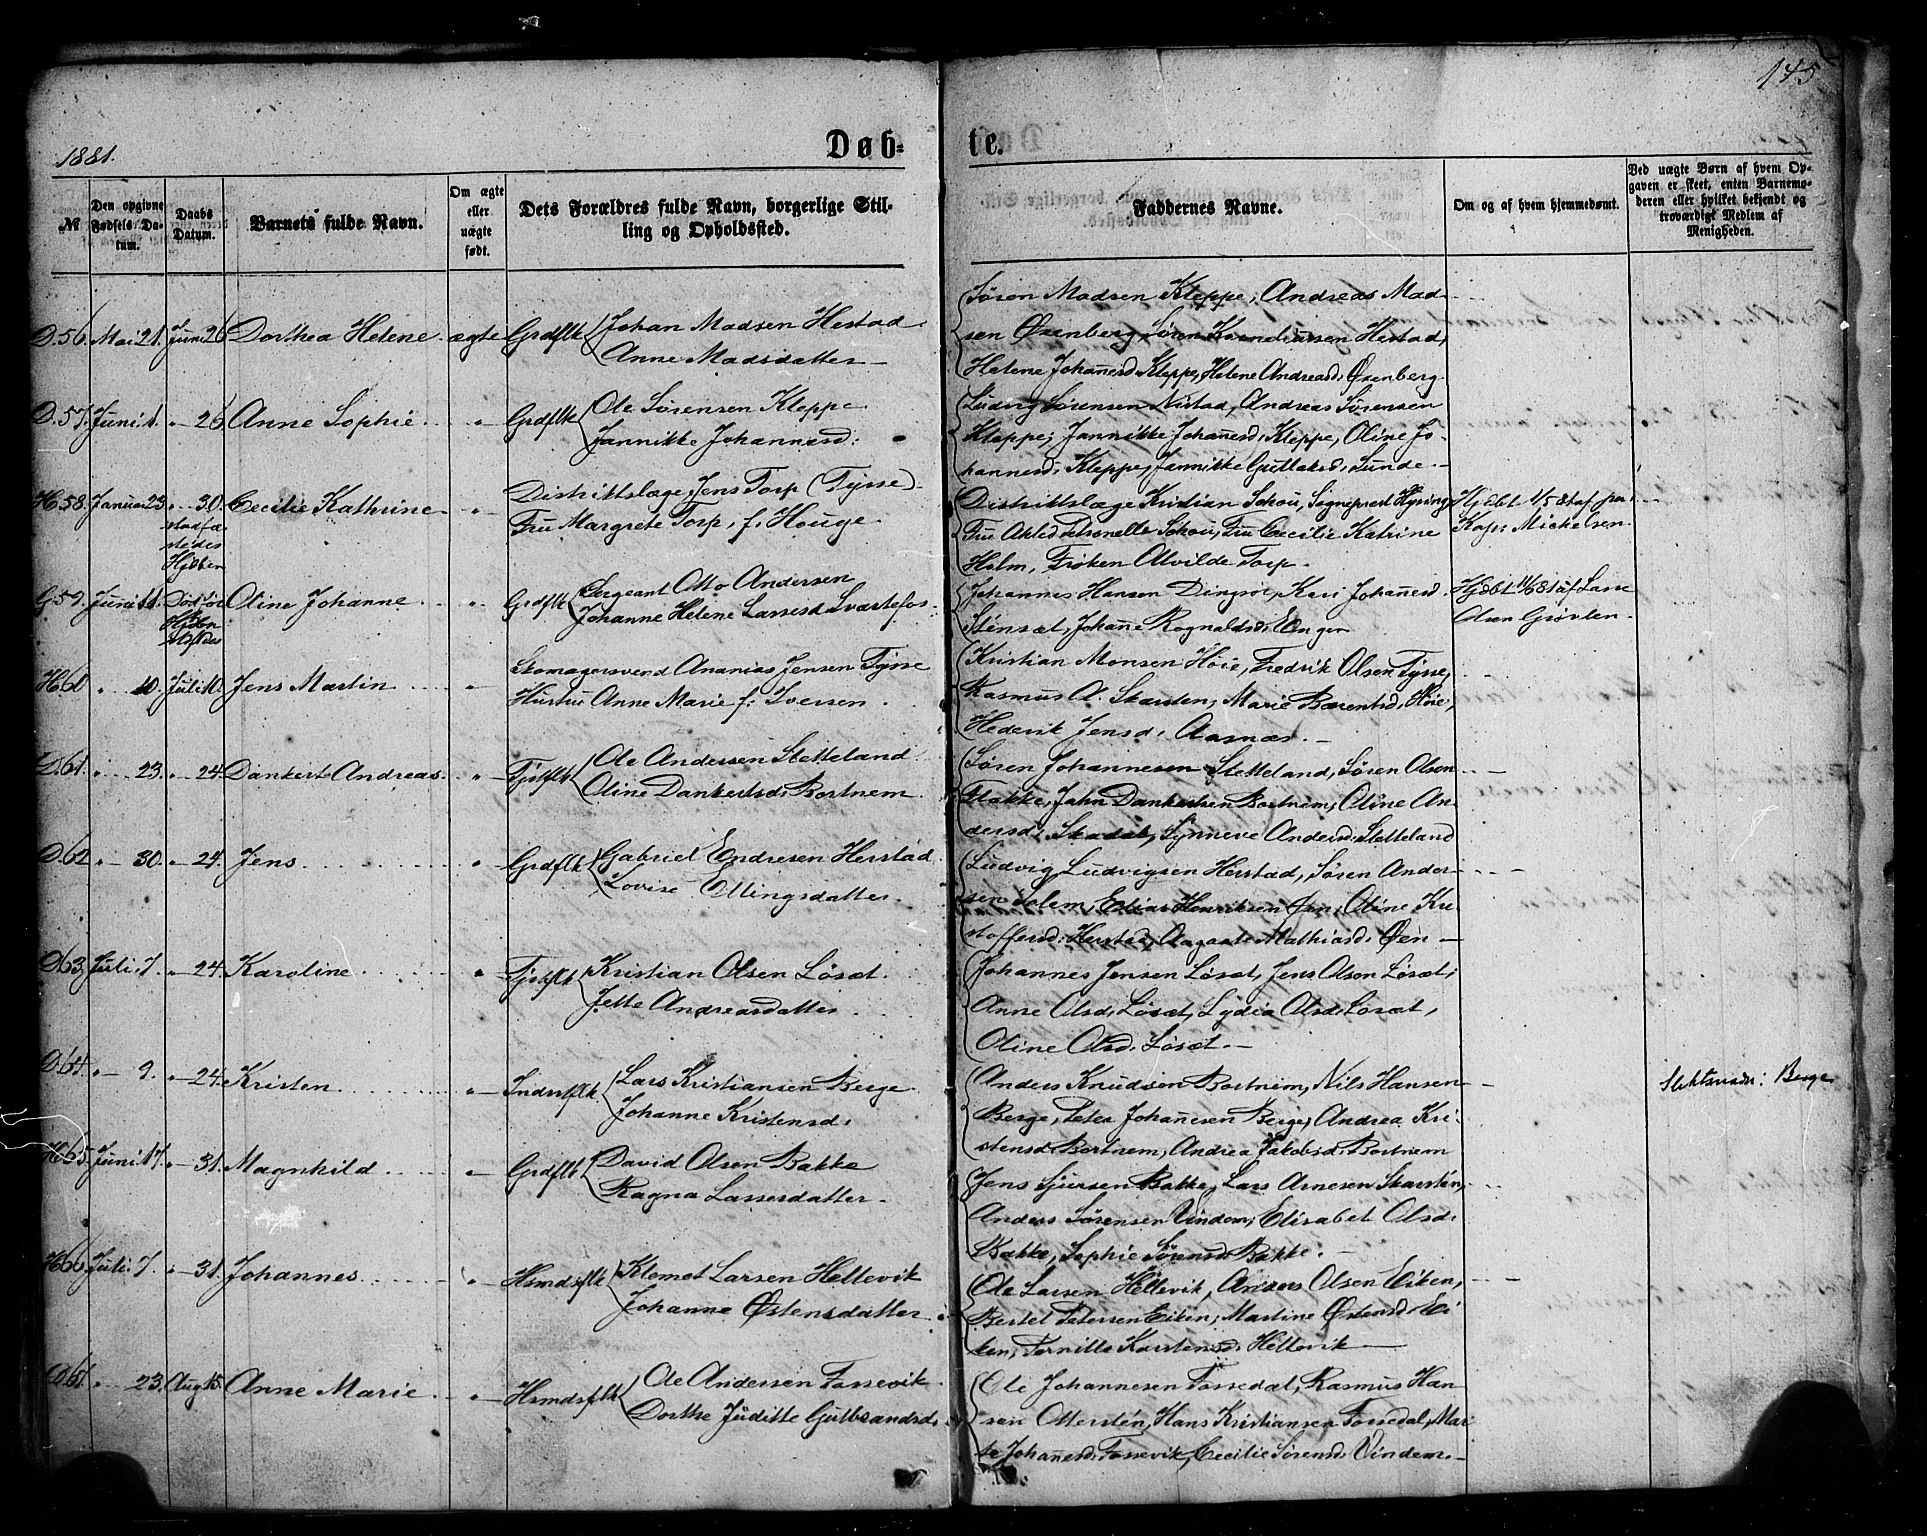 145
1881.
Døb-
te.
№
Den opgivne Fødsels Da-
tum.
Daabs
Datum.
Barnets fulde Navn.
Om ægte
eller
uægte
født.
Dets Forældres fulde Navn, borgerlige Stil-
ling og Opholdssted.
Faddernes Navne.
Om og af hvem hjemmedøbt.
Ved uægte Børn af hvem Op-
gaven er skeet, enten Barnemo-
deren eller hvilket bekjendt og
troværdigt Medlem af
Menigheden.
D.56. Mai 21. Juni 26 Dorthea Helene. ægte Grdflk Johan Madsen Hestad
Anne Madsdatter
Søren Madsen Kleppe, Andreas Mad-
sen Øxenberg, Søren Korneliussen Hestad,
Helene Johanesd. Kleppe, Helene Andreasd. Øxenberg.
D.57. Juni 1. " 26 Anne Sophie. " Grdflk Ole Sørensen Kleppe
Jannikke Johannesd.
Ludvig Sørensen Nistad, Andreas Sørensen
Kleppe, Jannikke Johanesd. Kleppe, Oline Jo-
hannesd. Kleppe, Jannikke Guttaksd. Lunde.
H.58. Januar 23. " 30. Cecilie Kathrine " Distriktslæge Jens Torp (Tysse)
Fru Margrete Torp, f. Houge.
stadfæ
stedes
Hjdben
Distriktslæge Kristian Schou, Sognepræst Hysing,
Fru Schou, Fru Cecilie Katrine
Holm, Frøken Alvilde Torp.
Hjdbt 1/5 81 af per.
Kap: Michelsen.
G.59. Juni 11. Oline Johanne " Grdflk Sergeant Otto Andersen
Johanne Helene Lassesd. Svartefos
Johannes Hansen Dingsør, Kari Johanesd.
Stensæt, Johane Rognaldsd. Enger
Hjdbt 11/6 81 af Lasse
Olsen Grøvlen.
H.60 " 10. Juli 10. Jens Martin " Skomagersvend Ananias Jensen Tysse
Hustru Anne Marie f. Iversen.
Kristian Monsen Høie, Fredrik Olsen Tysse,
Rasmus A. Skarsten, Marie Berentsd. Høie,
Hederik Jensd. Aasnæs.
D.61. " 23. " 24. Dankert Andreas. " Tjstflk Ole Andersen Sletteland
Oline Dankertsd. Bortnem.
Søren Johannesen Sletteland, Søren Olsen
Flakke, John Dankertsen Bortnem, Oline An-
dersd. Skadal, Synneve Andersd. Sletteland
D.62 " 30. " 24. Jens " Grdflk Gabriel Endresen Herstad.
Lovise Ellingsdatter.
Ludvig Ludvigsen Herstad, Søren Ander-
sen Solem, Elias Henriksen Øen, Oline Kri-
stoffersd. Herstad, Aagaate Mathiasd. Øen
D.63. Juli 7. " 24. Karoline " Tjstflk Kristian Olsen Løsæt.
Jette Andreasdatter
Johannes Jensen Løsæt, Jens Olsen Løsæt,
Anne Olsd. Løsæt, Lydia Olsd. Løsæt,
Oline Olsd. Løsæt.
D.64. " 9. " 24. Kristen " Indrstflk Lars Kristiansen Berge.
Johanne Kristensd.
Anders Knudsen Bortnem, Nils Hansen
Berge, Peter Johanesen Berge, Andrea Kri-
stensd. Bortnem, Andrea Jakobsd. Bortnem
Slektsnavn: Berge
H.65. Juni 17. " 31. Magnhild " Grdflk David Olsen Bakke
Ragna Lassesdatter.
Jens Sjursen Bakke, Lars Arnesen Skarstén,
Anders Sørensen Vindem, Elisabet Olsd.
Bakke, Sophie Sørensd. Bakke.
H.66. Juli 7. " 31. Johannes " Hsmdsflk Klemet Larsen Hellevik
Johanne Østensdatter
Ole Larsen Hellevik, Anders Olsen Eiken,
Bertel Petersen Eiken, Martine Østensd. Ei-
ken, Pernille Karstensd. Hellevik
D.67 " 23. Aug. 15. Anne Marie " Hsmdsflk Ole Andersen Fossevik
Dorthe Juditte Gulbrandsd.
Ole Johannesen Fossedal, Rasmus Han-
sen Otterstén, Hans Kristiansen Fossedal, Mar-
te Johanesd. Fossevik, Cecilie Sørensd. Vindem.